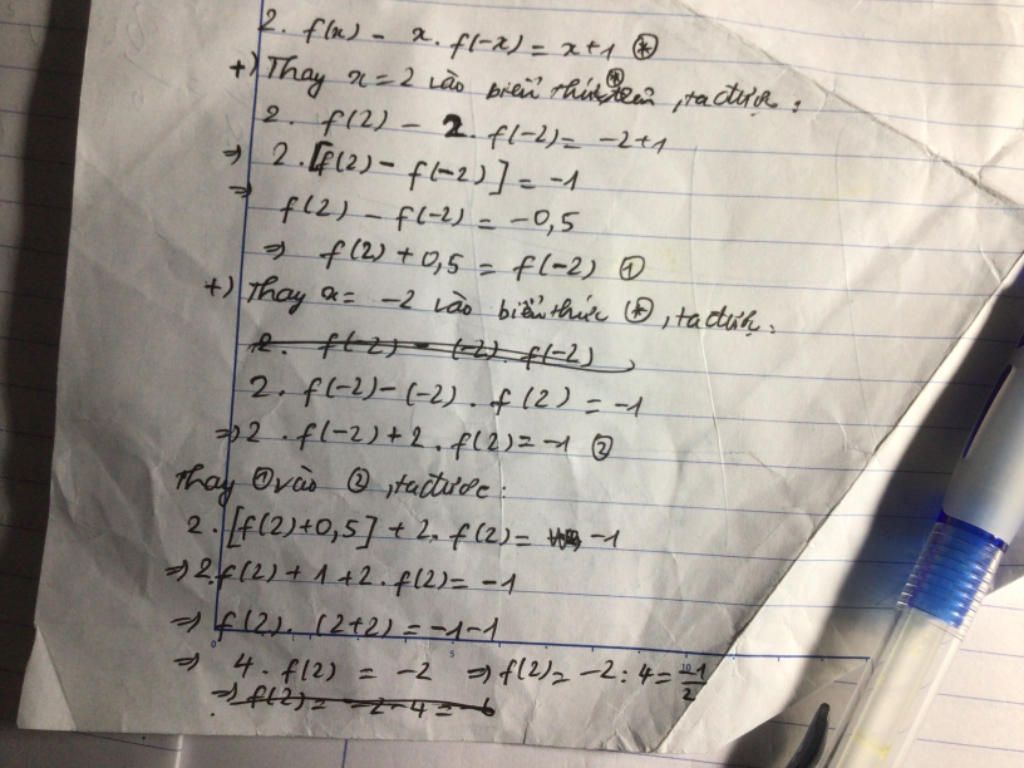 2. f(x) - x. f(-x) = x+1 (*)
+) Thay x = 2 vào biểu thức (*) trên, ta được:
2. f(2) - 2. f(-2) = -2+1
=> 2. [f(2) - f(-2)] = -1
=> f(2) - f(-2) = -0,5
=> f(2) + 0,5 = f(-2) ①
+) Thay x = -2 vào biểu thức (*), ta được:
2. f(-2) - (-2). f(-2)
2. f(-2) - (-2). f(2) = -1
=> 2. f(-2) + 2. f(2) = -1 ②
Thay ① vào ②, ta được:
2. [f(2)+0,5] + 2. f(2) = -1
=> 2.f(2) + 1 + 2. f(2) = -1
=> f(2). (2+2) = -1-1
0 5 10
=> 4. f(2) = -2 => f(2) = -2 : 4 = -1/2
=> f(2) = -2-4 = -6